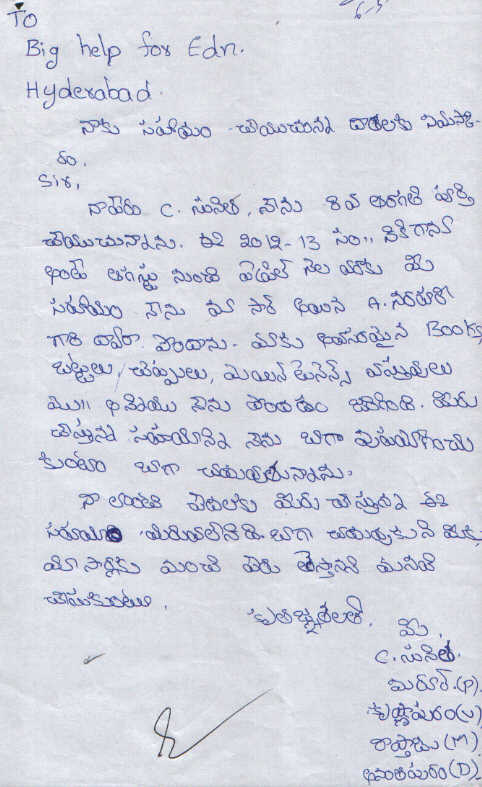 TO
Big help for Edn.
Hyderabad.
నాకు సహాయం చేయుచున్న దాతలకు నమస్కా-
రం.
Sir,
నాపేరు C. సునీత, నేను 8వ తరగతి పూర్తి
చేయుచున్నాను. ఈ 2012-13 సం,, నికిగాను
అంటే ఆగస్టు నుంచి ఏప్రిల్ నెల వరకు మీ
సహాయం నేను మా సార్ అయిన A.
గారి ద్వారా పొందాను. నాకు అవసరమైన Books,
బట్టలు, చెప్పులు, మెయిన్ టెనెన్స్ వస్తువులు
మొ|| అవియు నేను పొందడం జరిగింది. మీరు
చేస్తున్న సహాయాన్ని నేను బాగా వుపయోగించు
కుంటూ బాగా చదువుతున్నాను.
నా లాంటి పేదలకు మీరు చేస్తున్న ఈ
సహాయం మరువలేనిది. బాగా చదువుకుని మీకు,
మా సార్లకు మంచి పేరు తెస్తానని మనవి
చేసుకుంటూ.
కృతజ్ఞతలతో.
మీ,
C. సునీత.
(P).
కృష్ణాపురం(V)
రాప్తాడు (M)
అనంతపురం(D)